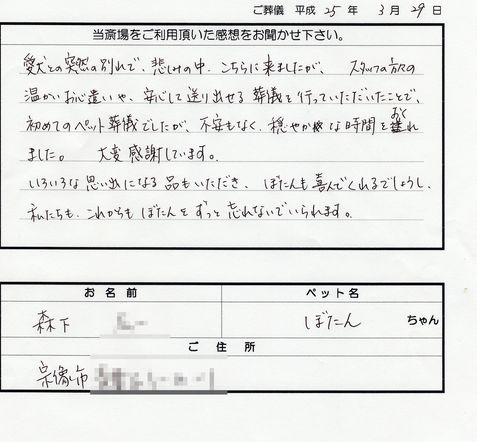 ご葬儀 平成 25 年 3 月 29 日
当斎場をご利用頂いた感想をお聞かせ下さい。
愛犬との突然の別れで、悲しみの中、こちらに来ましたが、スタッフの方々の
温かいお心遣いや、安心して送り出せる葬儀を行っていただいたことで、
初めてのペット葬儀でしたが、不安もなく、穏やかな時間をおくれ
ました。 大変感謝しています。
いろいろな思い出になる品もいただき、ぼたんも喜んでくれるでしょうし、
私たちも、これからもぼたんをずっと忘れないでいられます。
お名前 ペット名
森下 ぼたん ちゃん
ご住所
宗像市